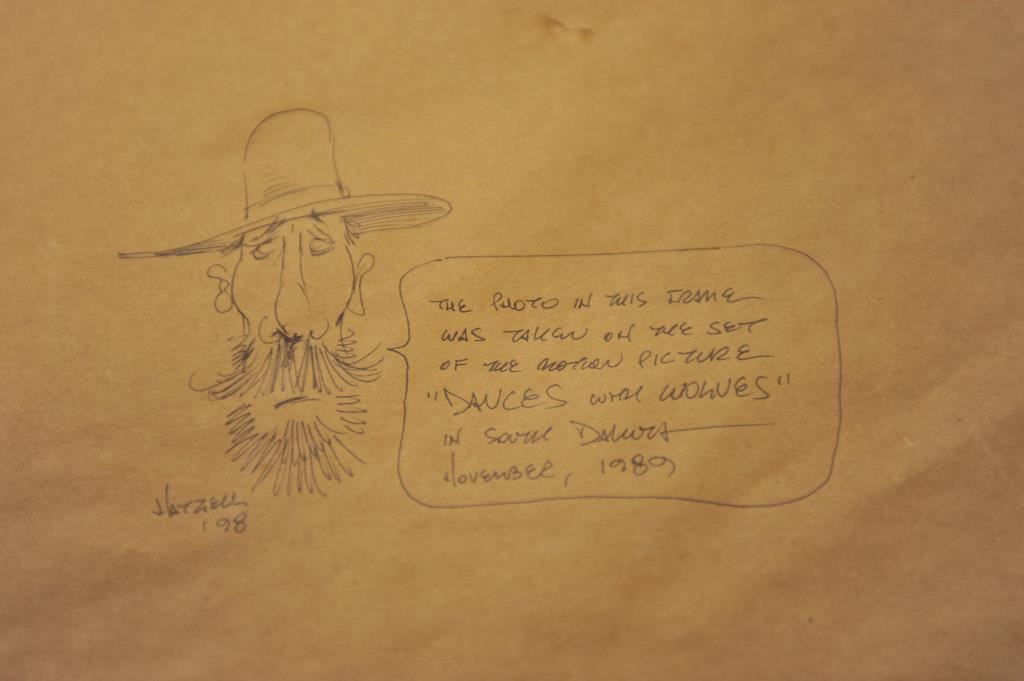 THE PHOTO IN THIS FRAME
WAS TAKEN ON THE SET
OF THE MOTION PICTURE
"DANCES WITH WOLVES"
IN SOUTH DAKOTA
NOVEMBER, 1989
HATZELL
'98